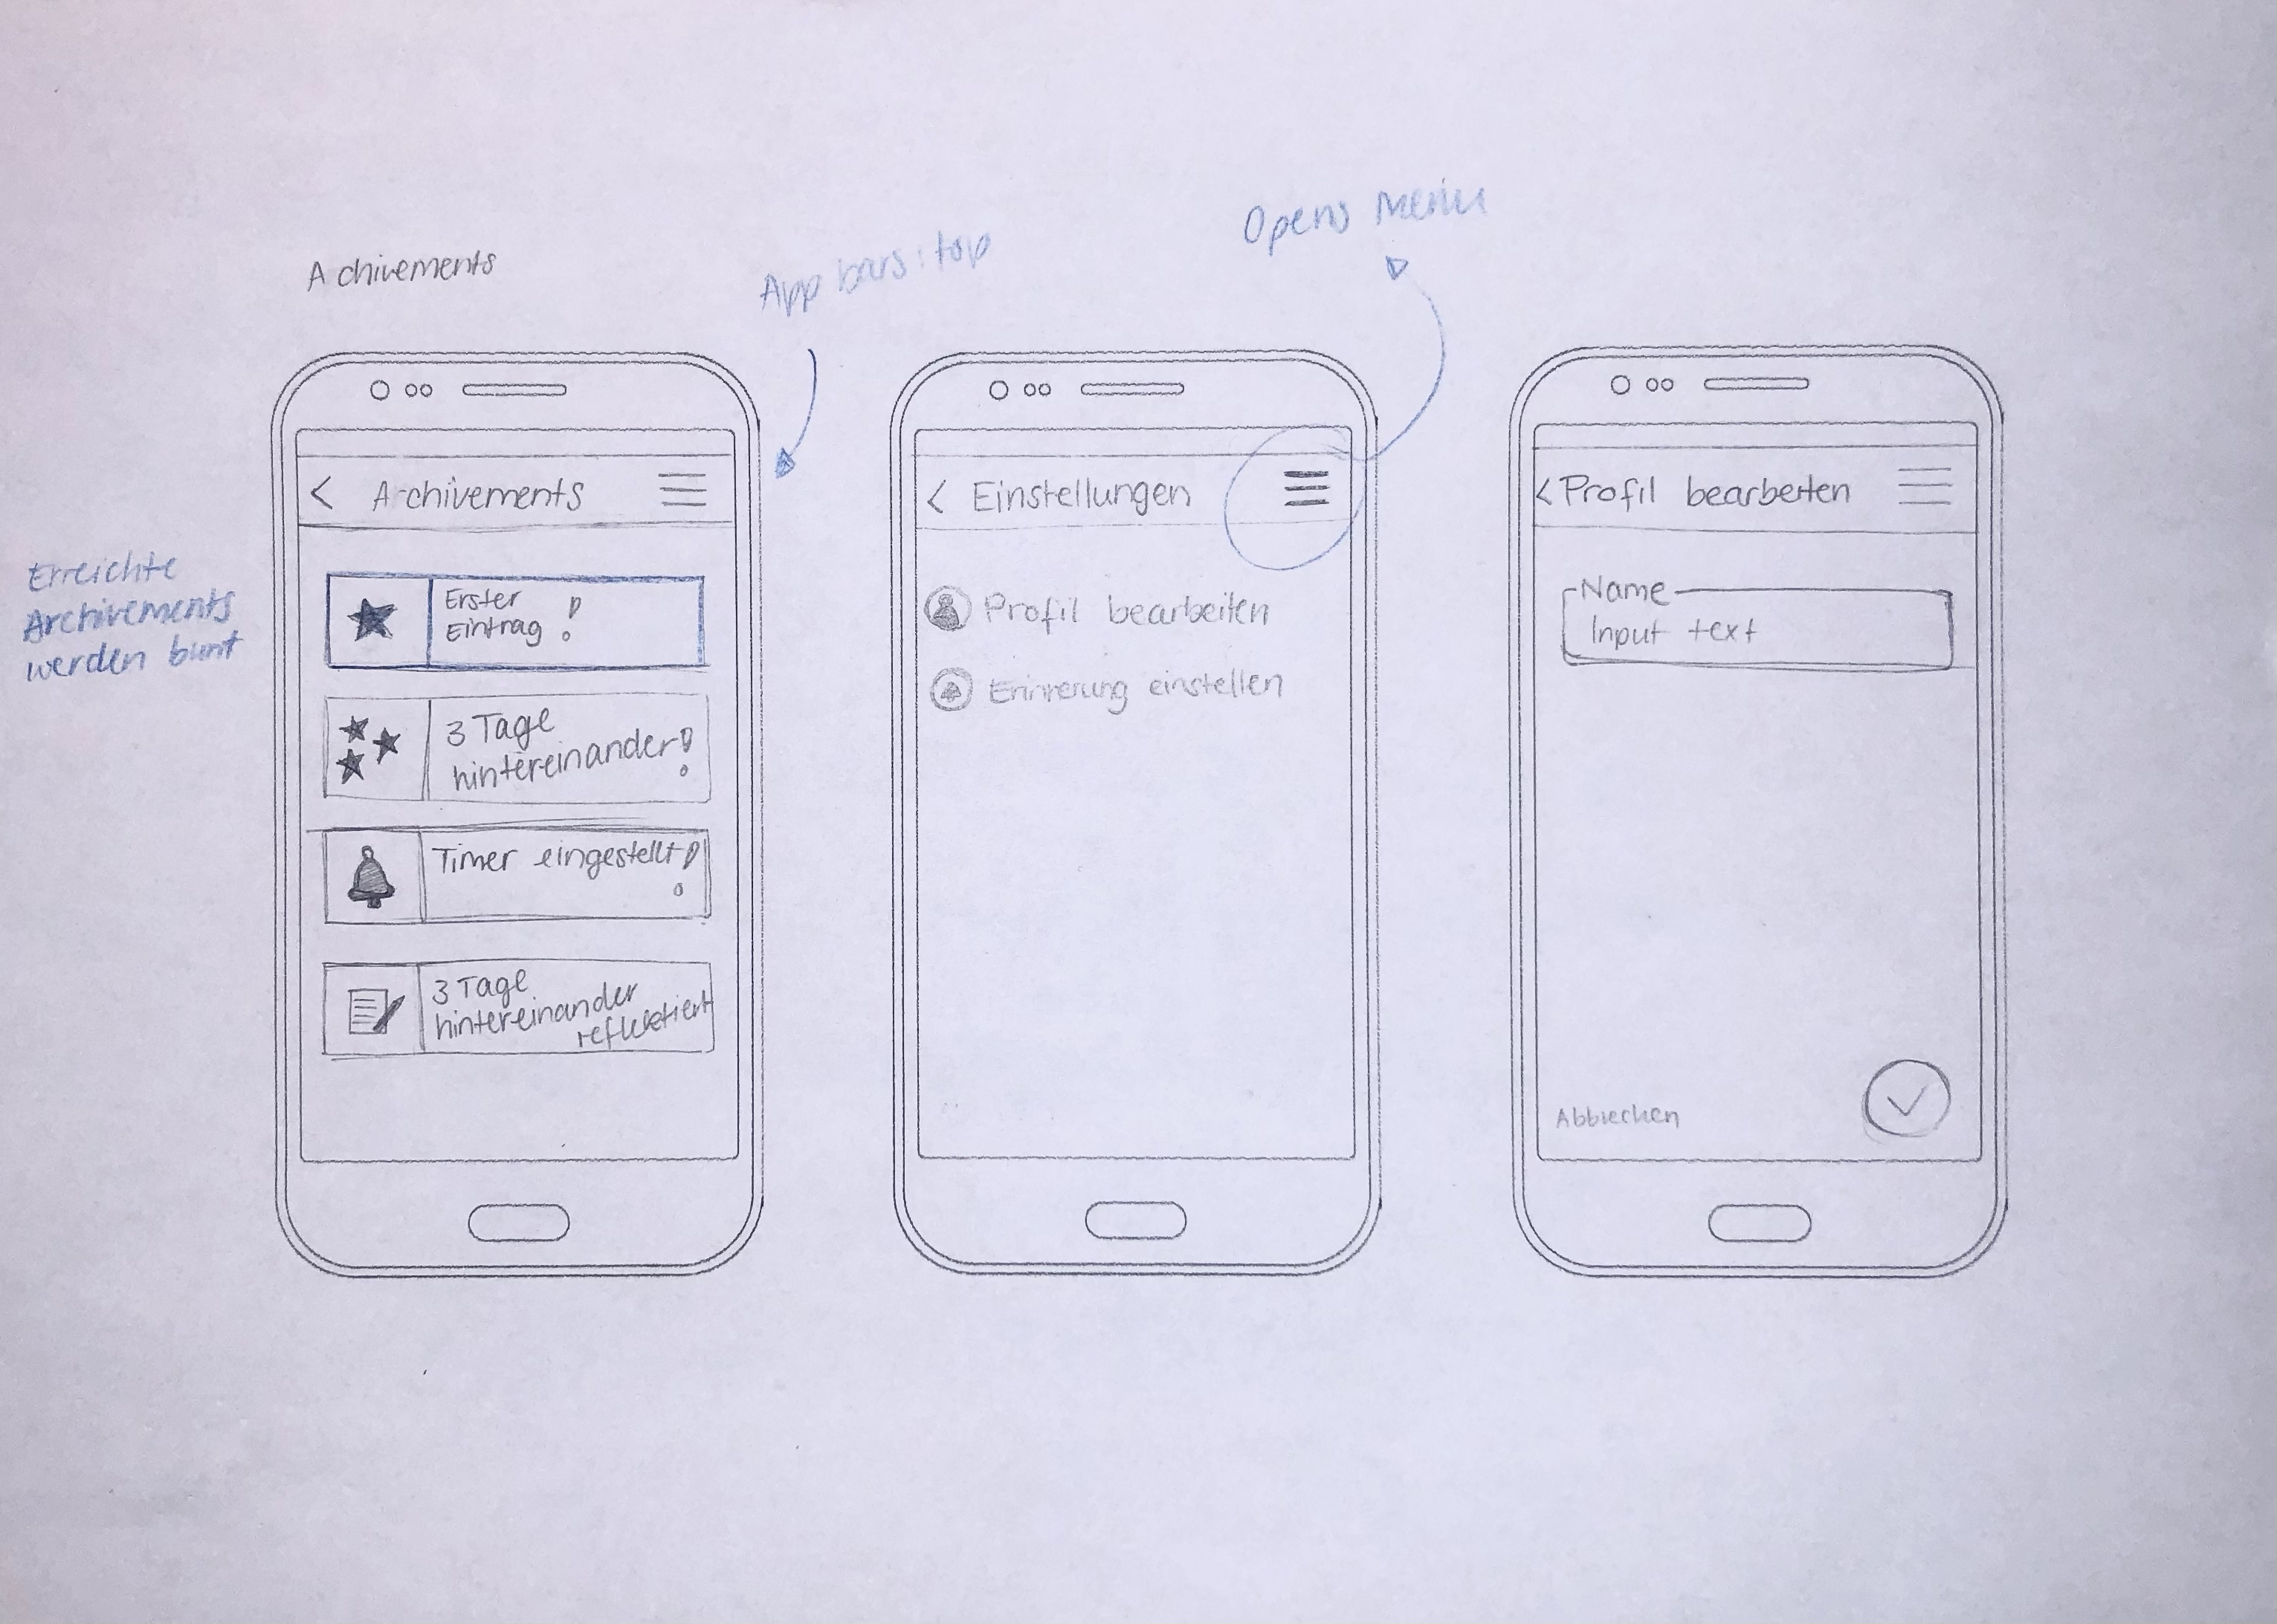 Achivements
App bars: top
Opens Menu
Achivements
Erreichte
Archivements
werden bunt
Erster
Eintrag!
3 Tage
hintereinander!
Timer eingestellt!
3 Tage
hintereinander
reflektiert
Einstellungen
Profil bearbeiten
Erinnerung einstellen
Profil bearbeiten
Name
Input text
Abbrechen